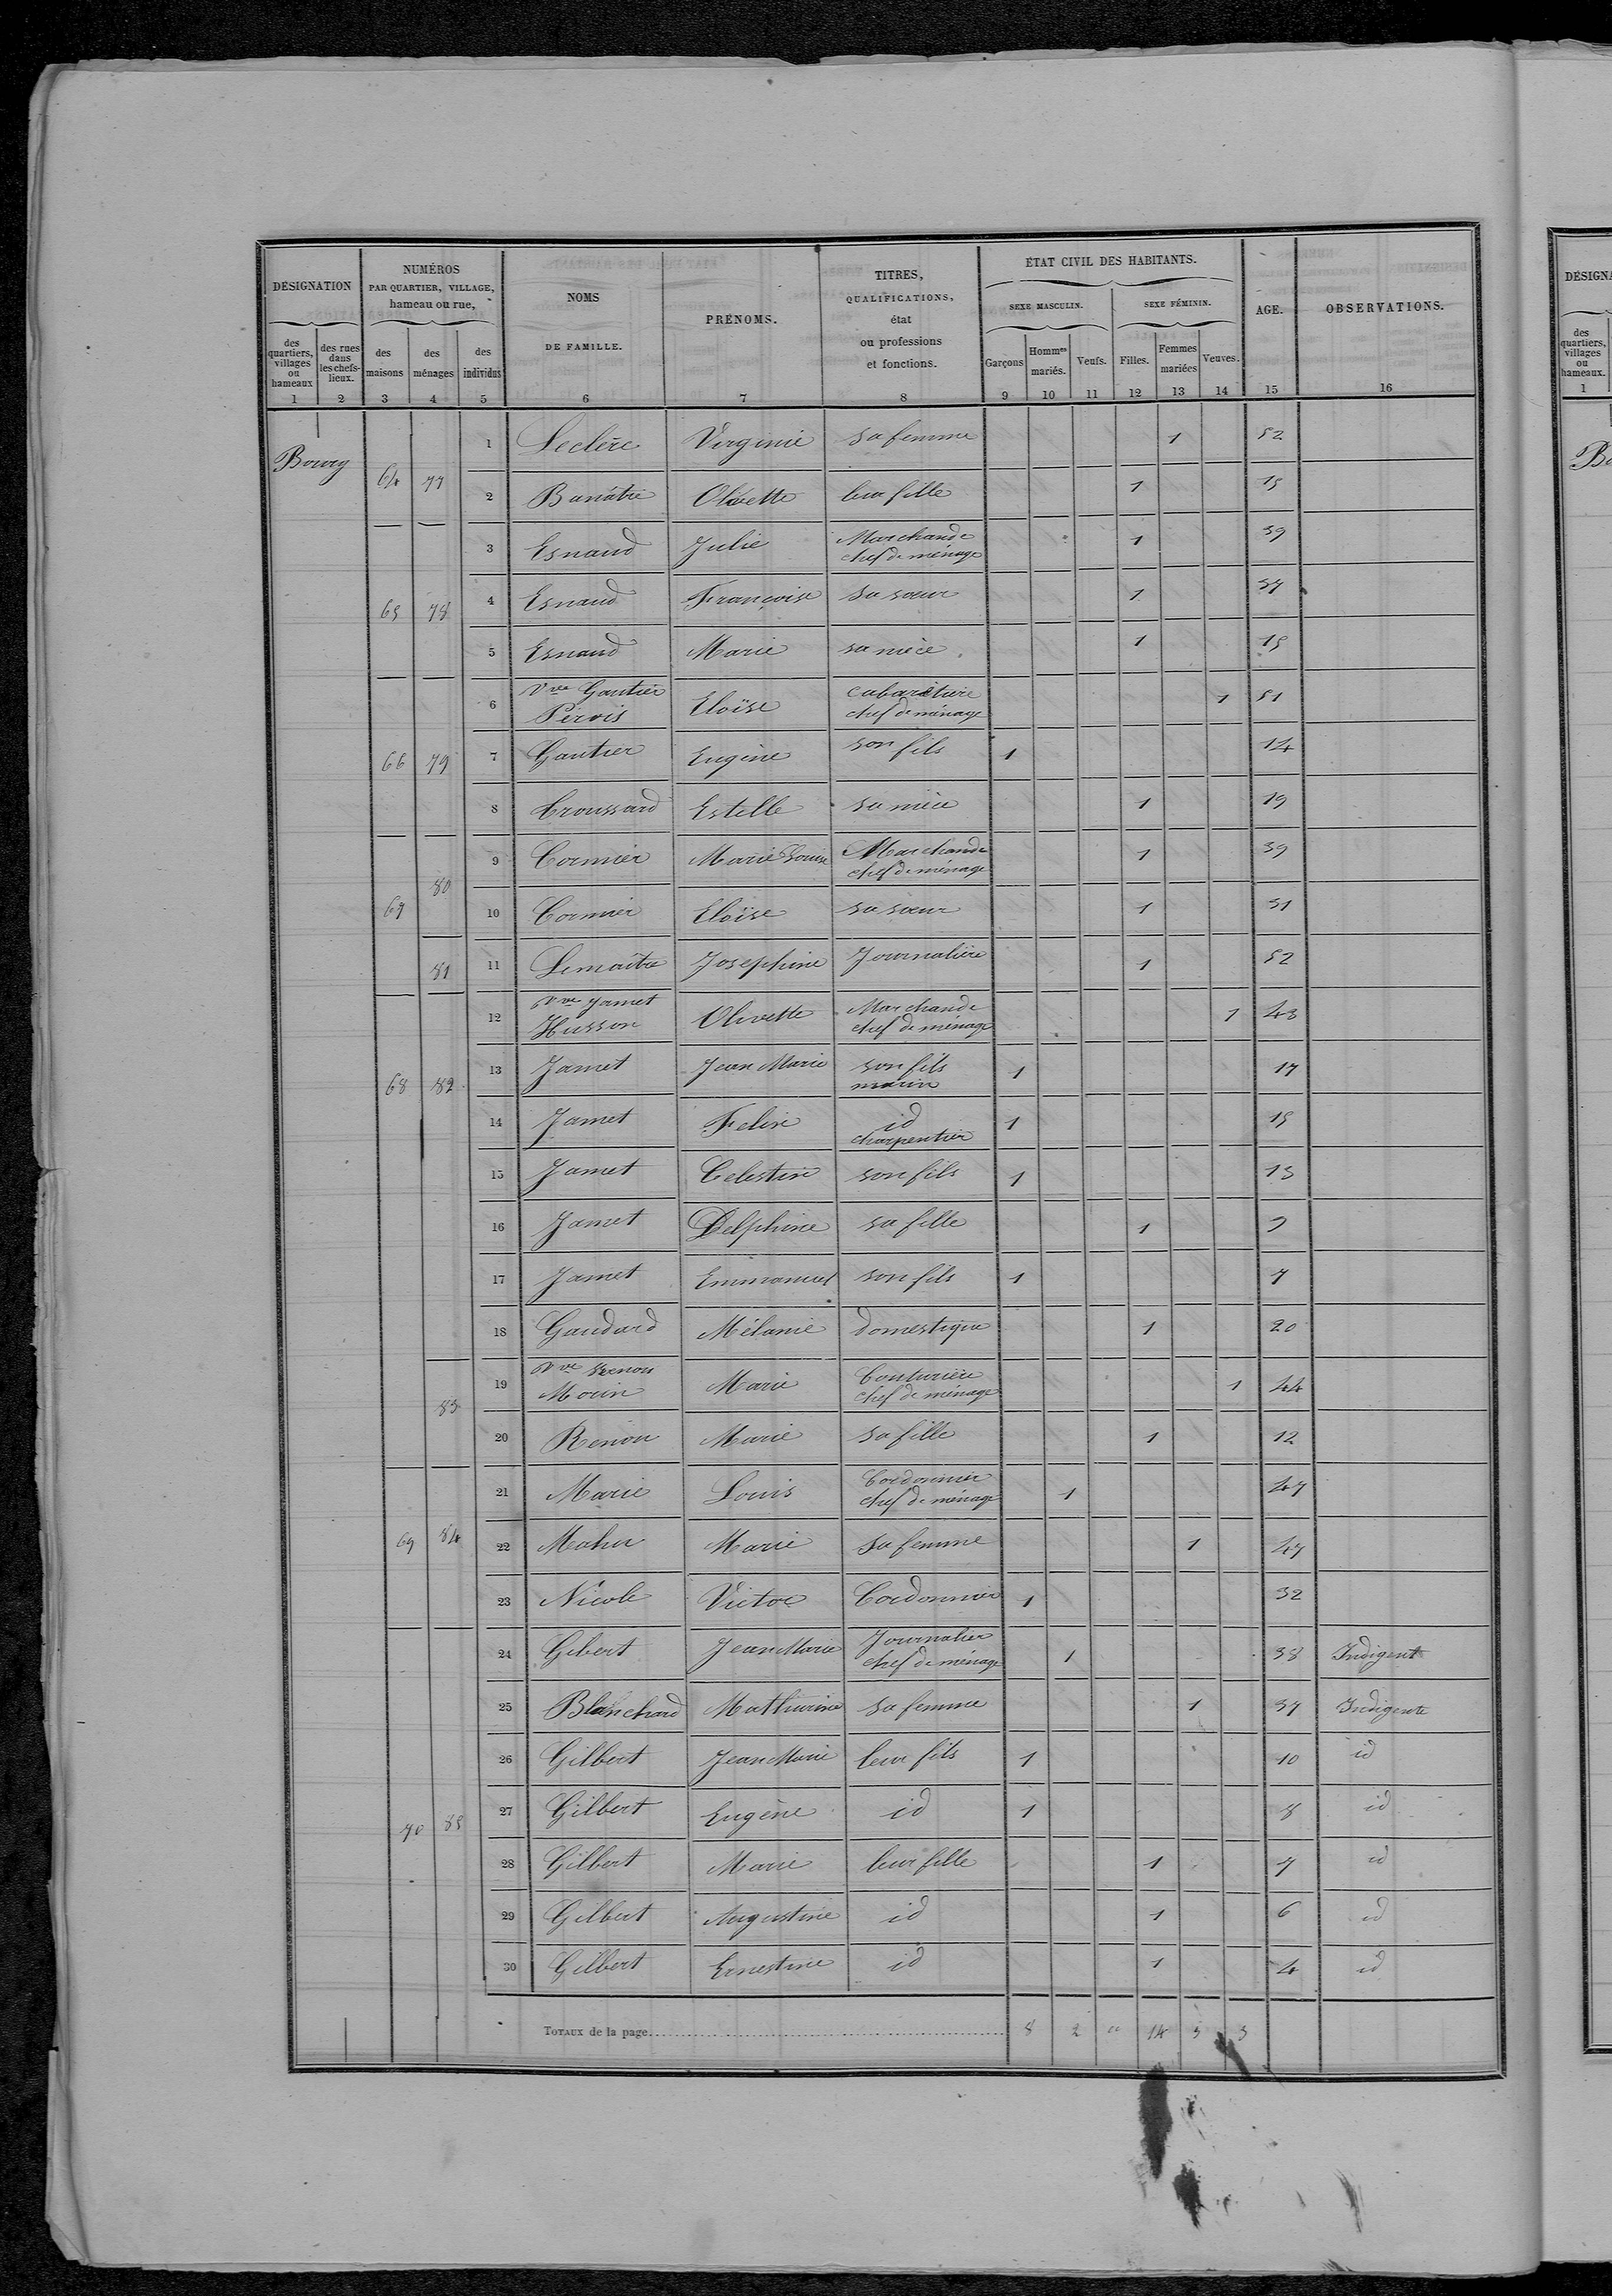 DÉSIGNATION
NUMÉROS
PAR QUARTIER, VILLAGE,
hameau ou rue,
NOMS
DE FAMILLE.
PRÉNOMS.
TITRES,
QUALIFICATIONS,
état
ou professions
et fonctions.
ÉTAT CIVIL DES HABITANTS.
SEXE MASCULIN.
SEXE FÉMININ.
AGE.
OBSERVATIONS.
des quartiers, villages ou hameaux
des rues dans les chefs-lieux.
des maisons
des ménages
des individus
Garçons
Hommes mariés.
Veufs.
Filles.
Femmes mariées
Veuves.
1 2 3 4 5 6 7 8 9 10 11 12 13 14 15 16
Bourg
64 77 1 Leclerc Virginie sa femme 1 52
2 Banâtre Olivette leur fille 1 15
3 Esnaud Julie Marchande chef de ménage 1 39
65 78 4 Esnaud Françoise sa sœur 1 37
5 Esnaud Marie sa nièce 1 15
6 Vve Gautier Pervis Eloïse cabaretière chef de ménage 1 51
66 79 7 Gautier Eugène son fils 1 14
8 Croussard Estelle sa nièce 1 19
9 Cormier Marie Louise Marchande chef de ménage 1 39
67 80 10 Cormier Eloïse sa sœur 1 31
81 11 Lemaître Joséphine Journalière 1 52
12 Vve Jamet Husson Olivette Marchande chef de ménage 1 48
68 82 13 Jamet Jean Marie son fils marin 1 17
14 Jamet Felix id charpentier 1 15
15 Jamet Celestin son fils 1 13
16 Jamet Delphine sa fille 1 9
17 Jamet Emmanuel son fils 1 7
18 Gaudard Mélanie domestique 1 20
83 19 Vve Renon Morin Marie Couturière chef de ménage 1 44
20 Renon Marie sa fille 1 12
21 Marie Louis Cordonnier chef de ménage 1 47
69 84 22 Mahu Marie sa femme 1 47
23 Nicole Victor Cordonnier 1 32
24 Gibert Jean Marie Journalier chef de ménage 1 38 Indigent
25 Blanchard Mathurine sa femme 1 37 Indigente
26 Gilbert Jean Marie leur fils 1 10 id
70 85 27 Gilbert Eugène id 1 8 id
28 Gilbert Marie leur fille 1 7 id
29 Gilbert Augustine id 1 6 id
30 Gilbert Ernestine id 1 4 id
TOTAUX de la page 8 2 " 14 3 3
DÉSIGNA
des quartiers, villages ou hameaux.
1
Bo